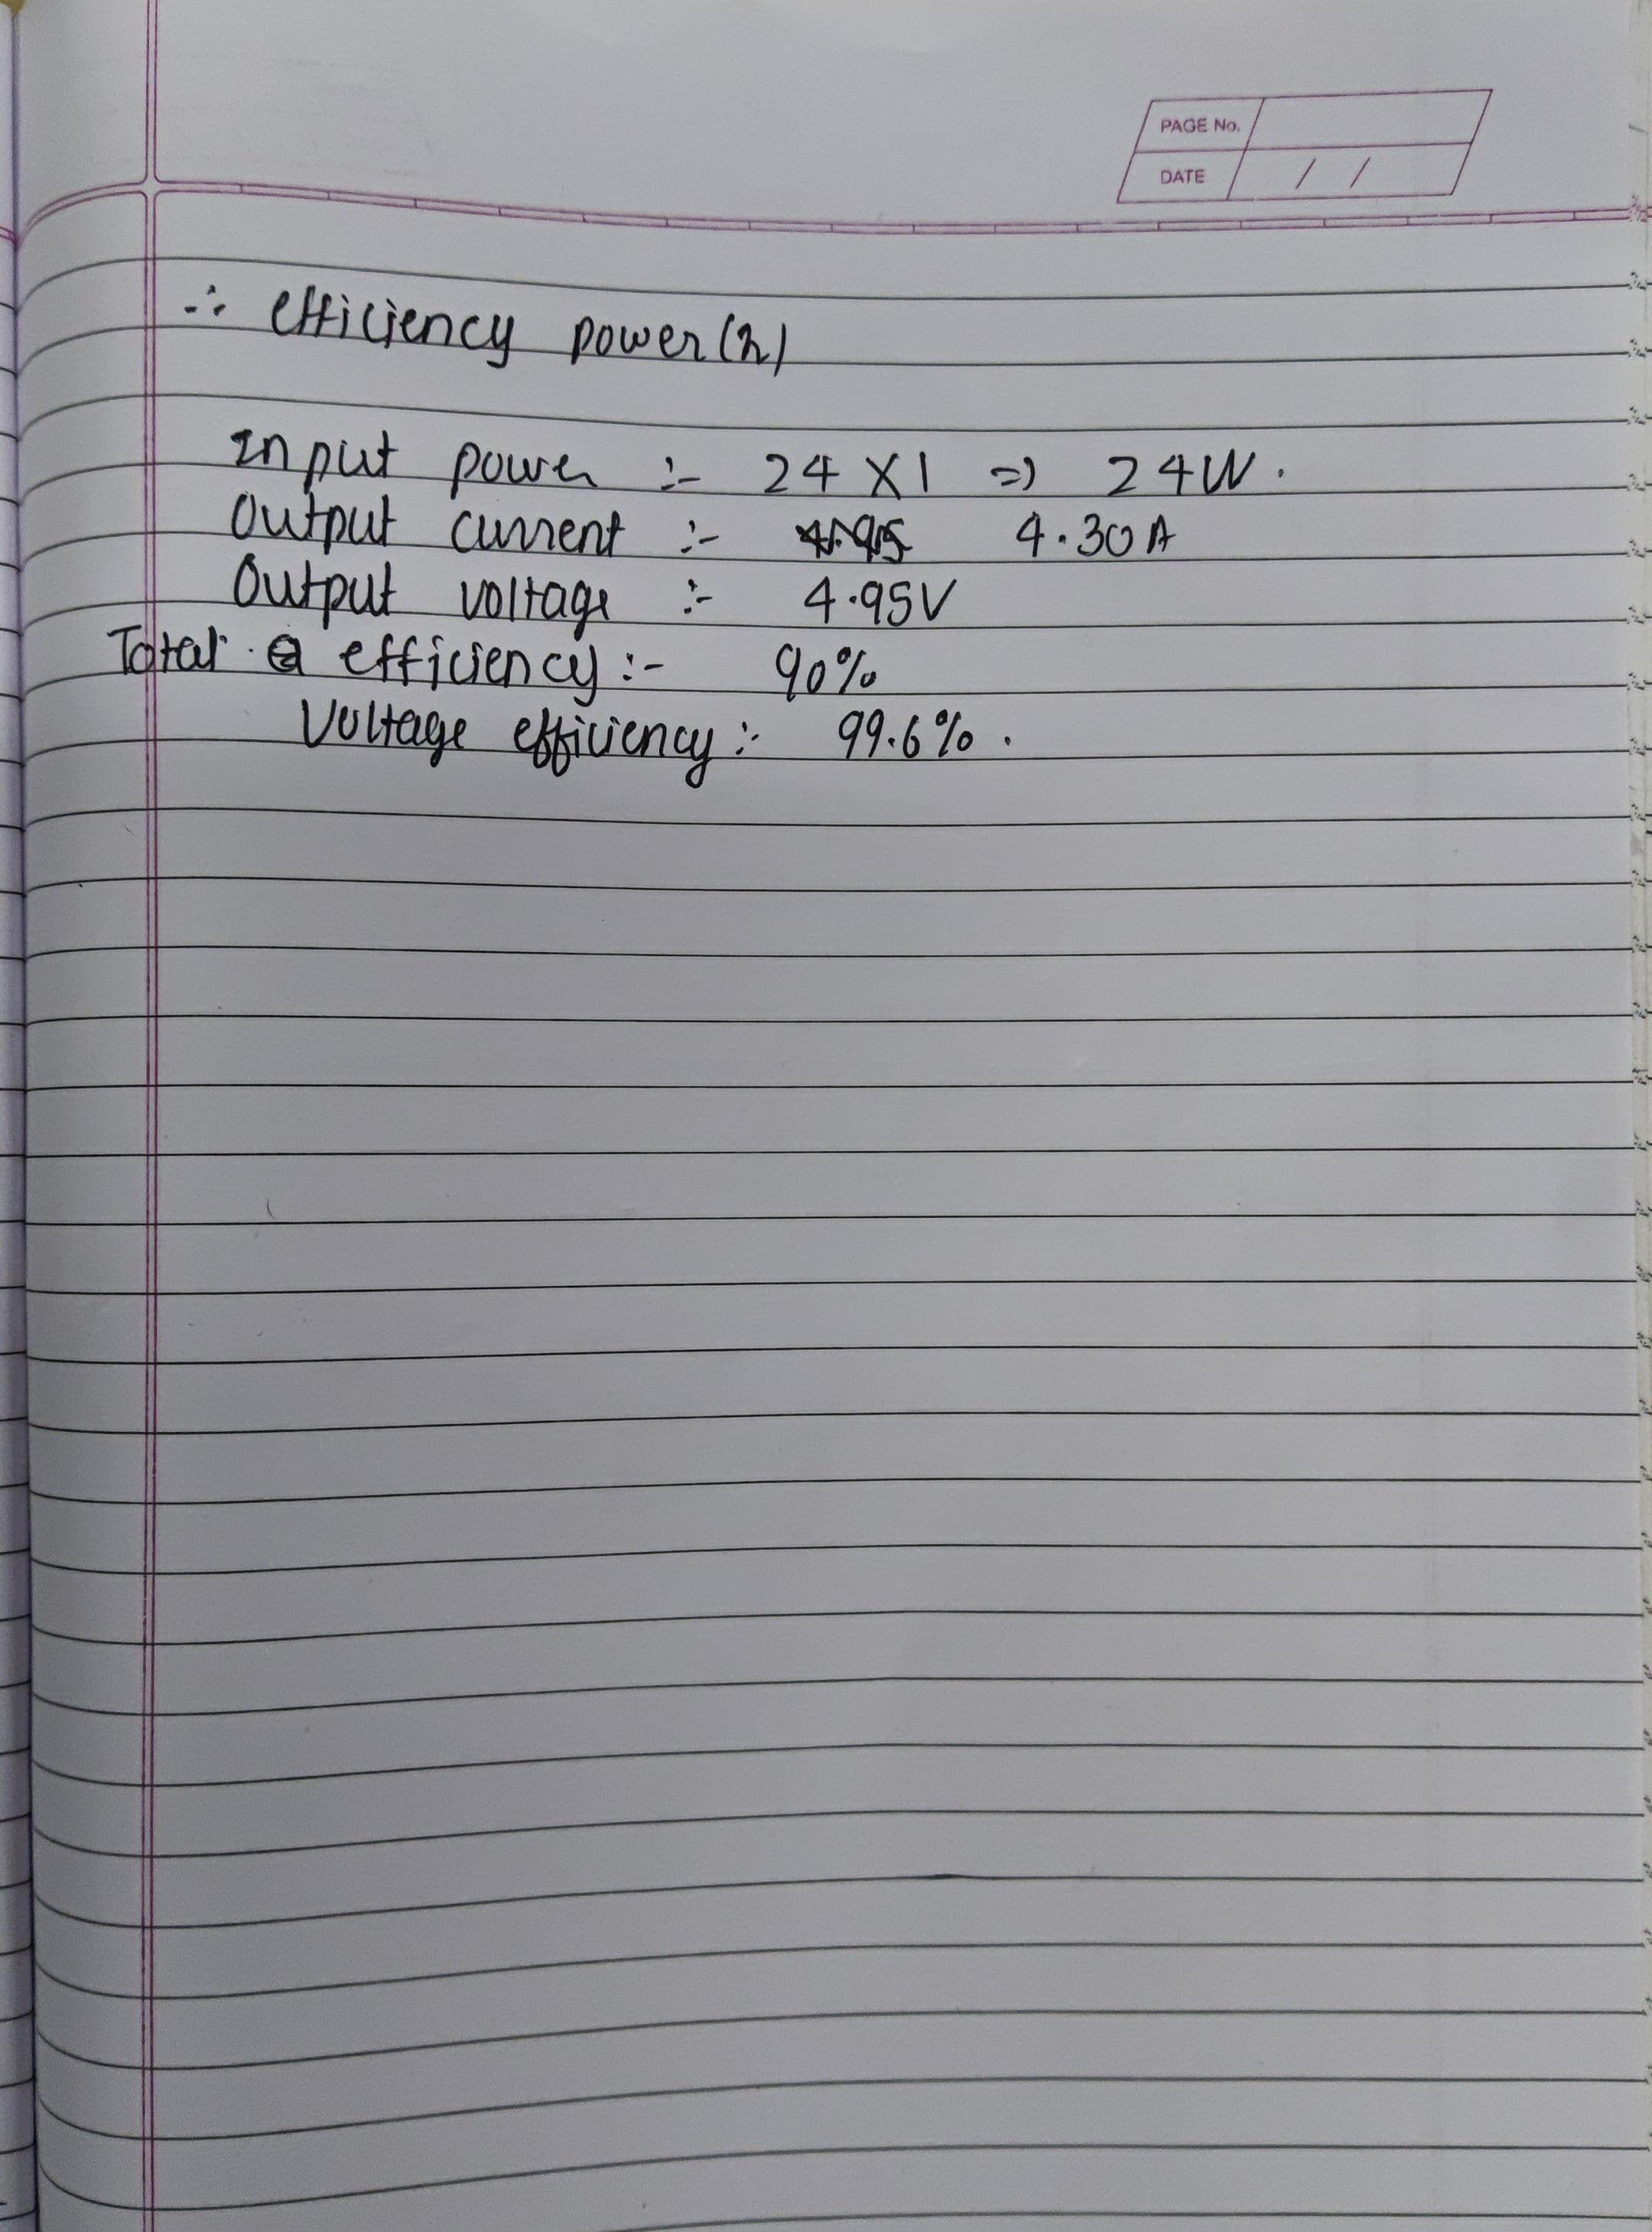 PAGE No.
DATE / /
∴ efficiency power(η)
Input power :- 24 X 1 => 24W.
Output current :- 4.30A
Output voltage :- 4.95V
Total efficiency :- 90%
Voltage efficiency :- 99.6%.